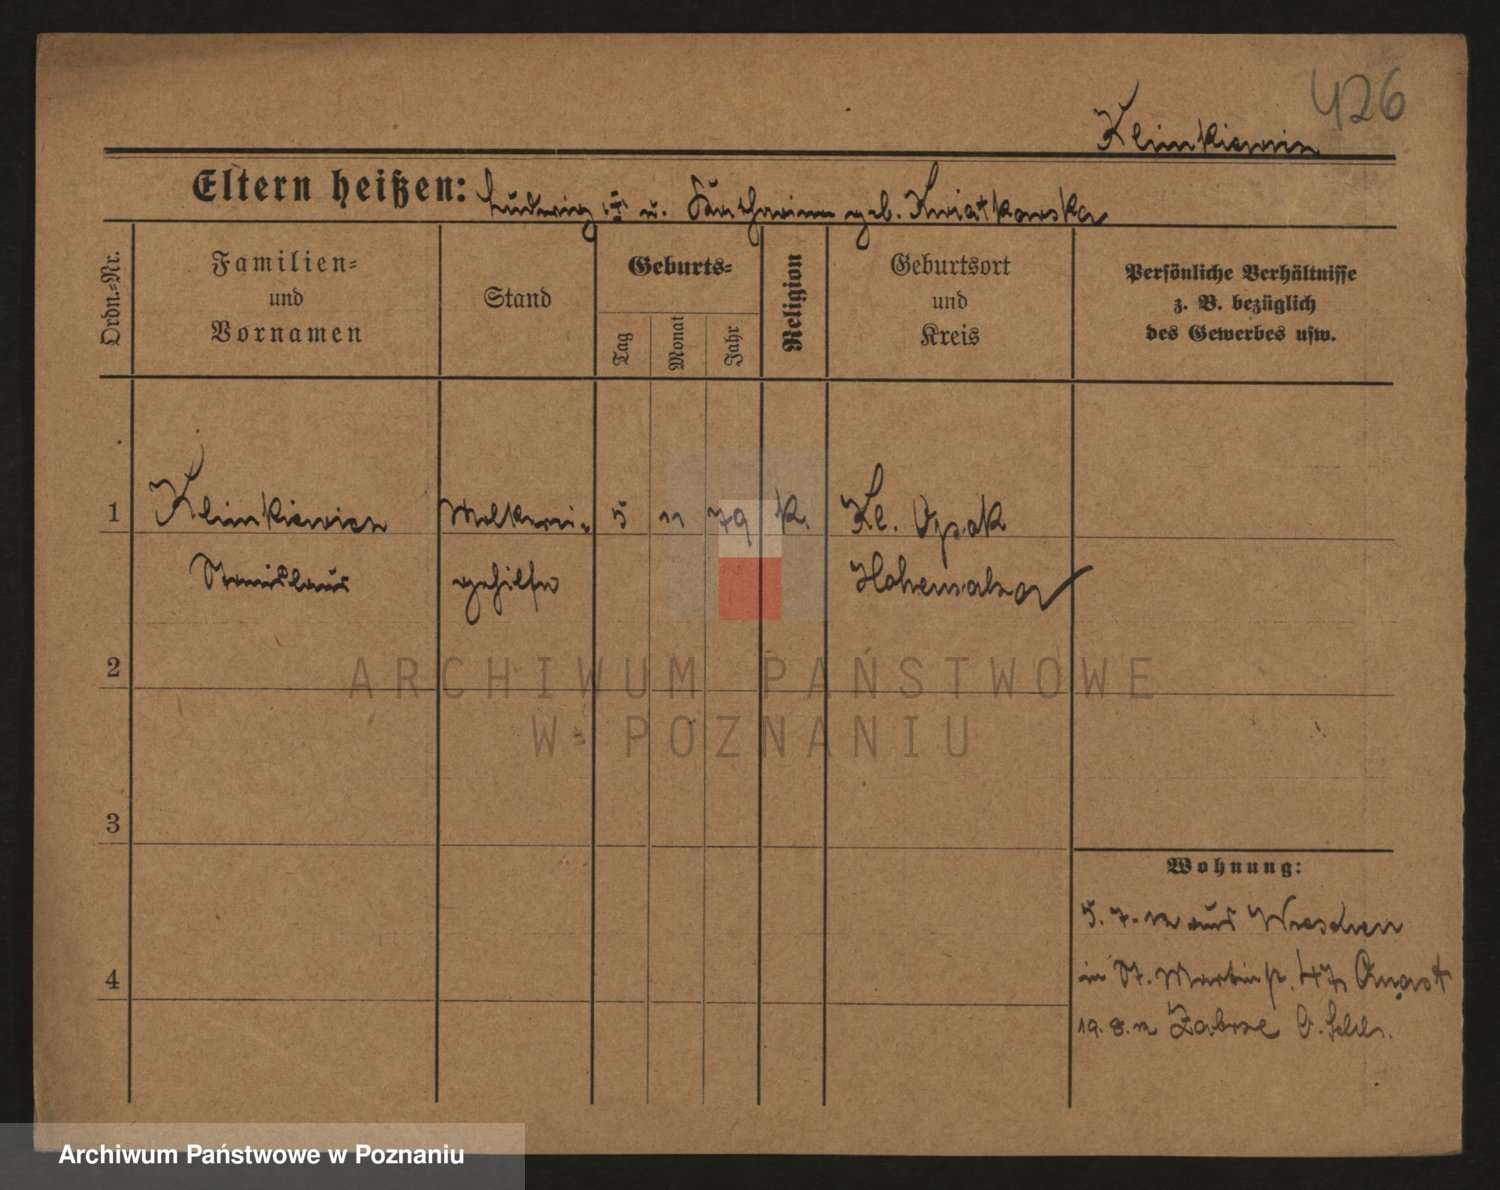 426
Klimkiewicz
Eltern heißen: Ludwig u. Katharina geb. Kwiatkowska
Ordn.-Nr.
Familien-
und
Vornamen
Stand
Geburts-
Tag
Monat
Jahr
Religion
Geburtsort
und
Kreis
Persönliche Verhältnisse
z. B. bezüglich
des Gewerbes usw.
1 Klimkiewicz Molkerei- 5 11 79 k. Kl. Opok
Stanislaus gehilfe Hohensalza
2
ARCHIWUM PAŃSTWOWE
W POZNANIU
3
4
Wohnung:
5. 7. 12 aus Wreschen
in St. Martinstr. 47
19. 8. 12 Zabrze O. Schl.
Archiwum Państwowe w Poznaniu